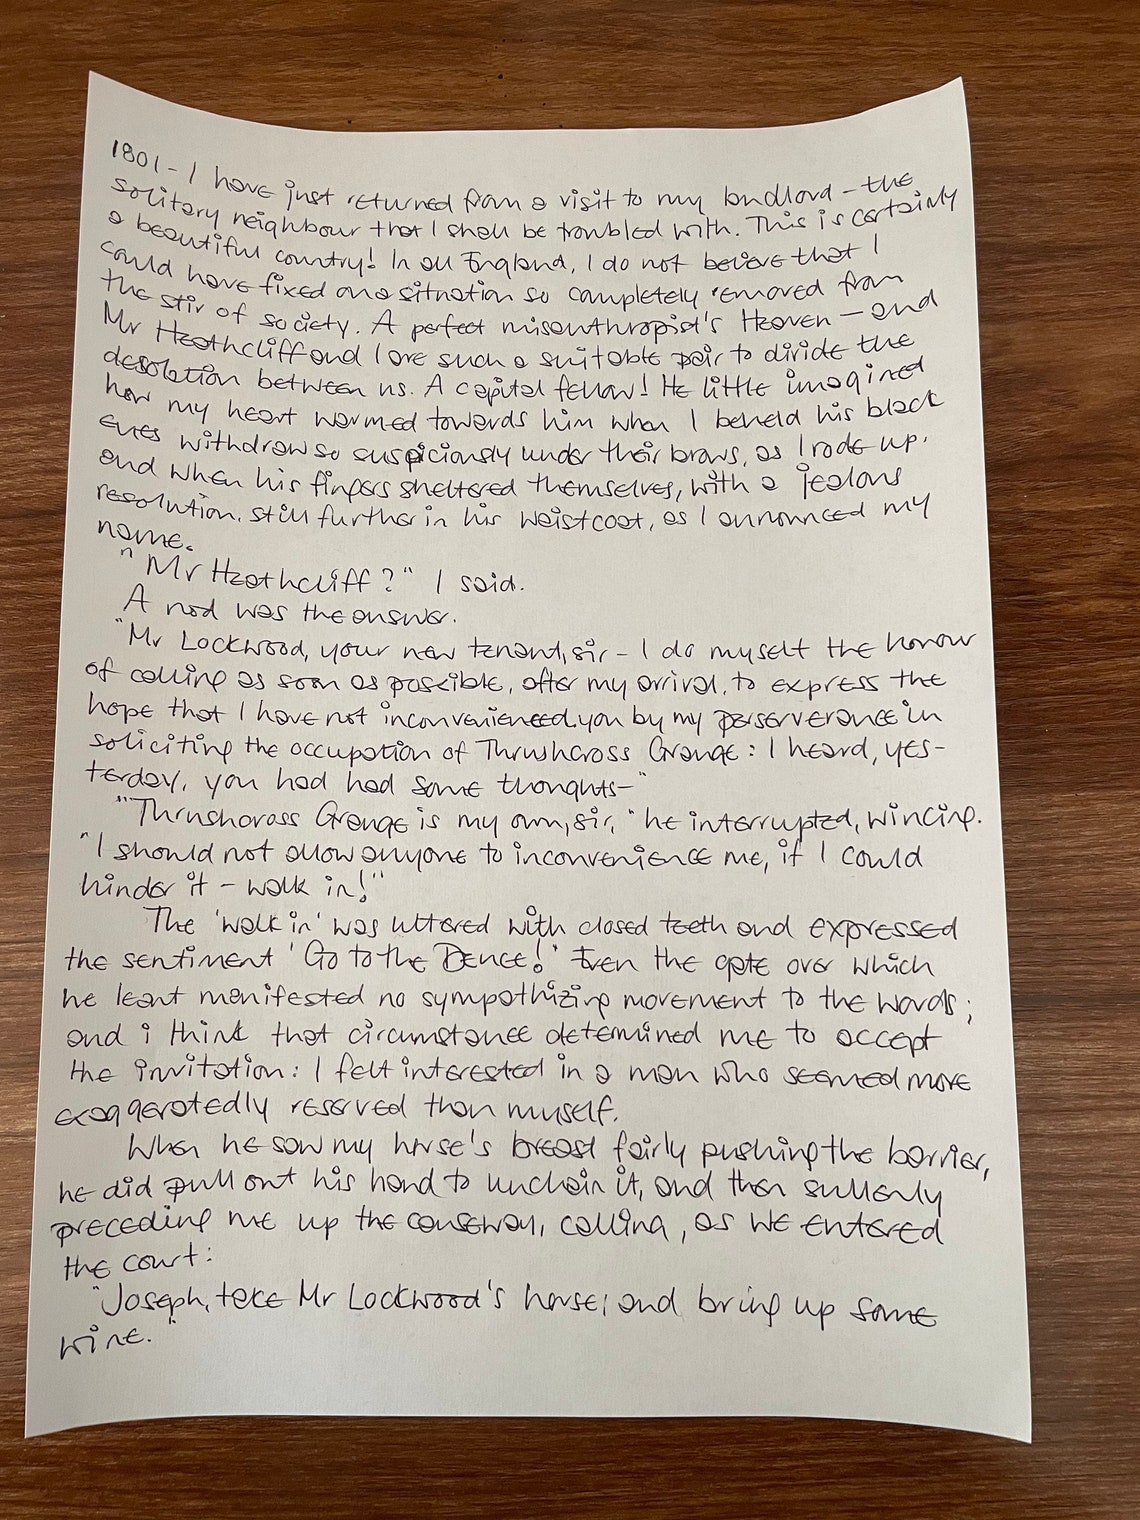 1801 - I have just returned from a visit to my landlord - the
solitary neighbour that I shall be troubled with. This is certainly
a beautiful country! In all England, I do not believe that I
could have fixed on a situation so completely removed from
the stir of society. A perfect misanthropist's Heaven - and
Mr Heathcliff and I are such a suitable pair to divide the
desolation between us. A capital fellow! He little imagined
how my heart warmed towards him when I beheld his black
eyes withdraw so suspiciously under their brows, as I rode up,
and when his fingers sheltered themselves, with a jealous
resolution, still further in his waistcoat, as I announced my
name.
"Mr Heathcliff?" I said.
A nod was the answer.
"Mr Lockwood, your new tenant, sir - I do myself the honour
of calling as soon as possible, after my arrival, to express the
hope that I have not inconvenienced you by my perserverance in
soliciting the occupation of Thrushcross Grange: I heard, yes-
terday, you had had some thoughts-"
"Thrushcross Grange is my own, sir," he interrupted, wincing.
"I should not allow anyone to inconvenience me, if I could
hinder it - walk in!"
The 'walk in' was uttered with closed teeth and expressed
the sentiment 'Go to the Deuce!' Even the gate over which
he leant manifested no sympathizing movement to the words;
and i think that circumstance determined me to accept
the invitation: I felt interested in a man who seemed more
exaggeratedly reserved than myself.
When he saw my horse's breast fairly pushing the barrier,
he did pull out his hand to unchain it, and then sullenly
preceding me up the causeway, calling, as we entered
the court:
"Joseph, take Mr Lockwood's horse; and bring up some
wine."